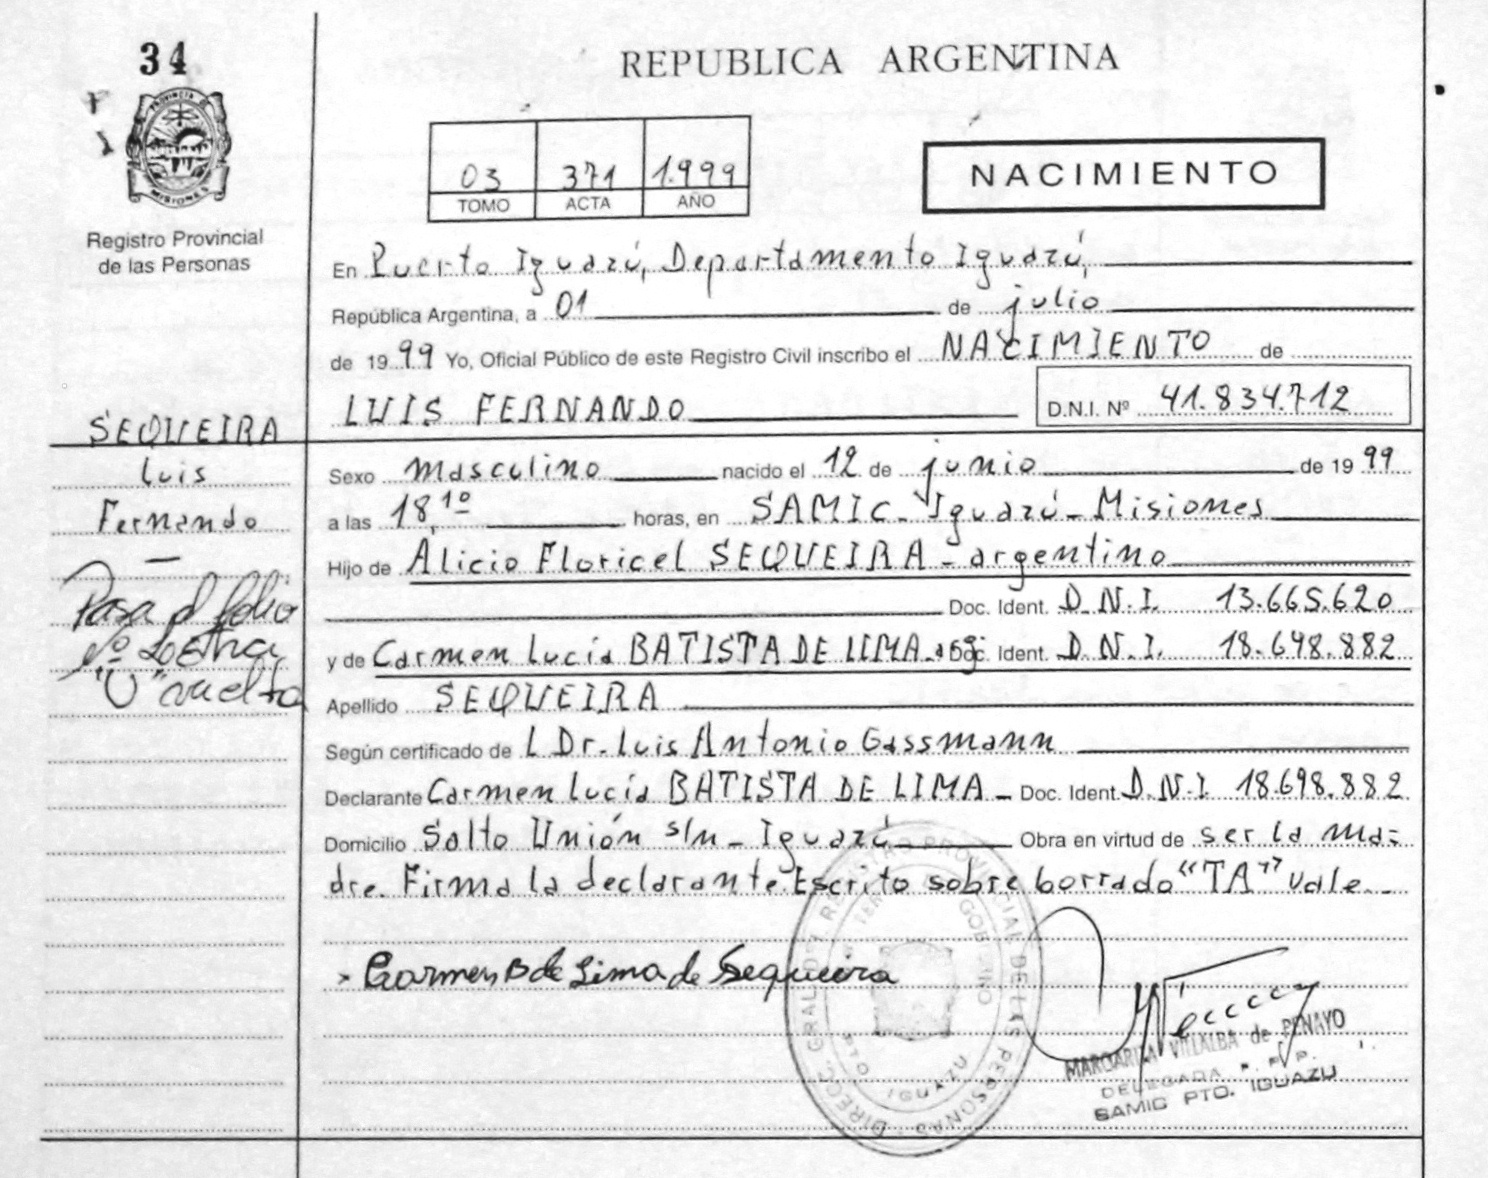 34
REPUBLICA ARGENTINA
PROVINCIA DE
MISIONES
Registro Provincial
de las Personas
03 371 1.999
TOMO ACTA AÑO
NACIMIENTO
En Puerto Iguazú, Departamento Iguazú,
República Argentina, a 01 de julio
de 1999 Yo, Oficial Público de este Registro Civil inscribo el NACIMIENTO de
LUIS FERNANDO D.N.I. Nº 41.834.712
SEQUEIRA
Luis
Fernando
Pasa al folio
Nº
"U" vuelta
Sexo masculino nacido el 12 de junio de 1999
a las 18,10 horas, en SAMIC - Iguazú - Misiones
Hijo de Alicio Floricel SEQUEIRA - argentino
Doc. Ident. D.N.I. 13.665.620
y de Carmen Lucía BATISTA DE LIMA Doc. Ident. D.N.I. 18.698.882
Apellido SEQUEIRA
Según certificado de L Dr. Luis Antonio Gassmann
Declarante Carmen Lucía BATISTA DE LIMA - Doc. Ident. D.N.I. 18.698.882
Domicilio Salto Unión s/n - Iguazú Obra en virtud de ser la ma=
dre. Firma la declarante. Escrito sobre borrado "TA" vale.
Carmen B de Lima de Sequeira
DIRECC. GRAL. DEL REGISTRO PROVINCIAL DE LAS PERSONAS
IGUAZU
MARGARITA VILLALBA de PENAYO
DELEGADA R. P. P.
SAMIC PTO. IGUAZU